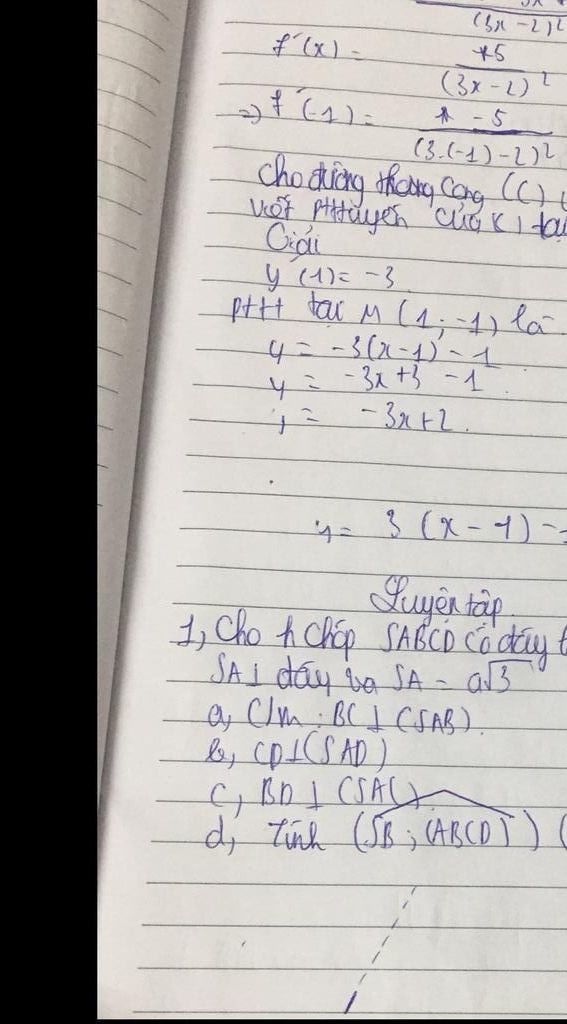 (3x-2)²
f'(x) = +5
(3x-2)²
=> f'(-1) = -5
(3.(-1)-2)²
Cho đường thẳng cong (C)
viết PTTTuyến của (C) tại
Giải
y'(1) = -3
PTTT tại M (1; -1) là
y = -3(x-1) - 1
y = -3x+3 - 1
y = -3x+2.
y = 3(x-1) -
Luyện tập
1, Cho h chóp SABCD có đáy
SA⊥ đáy và SA = a√3
a, C/m : BC ⊥ (SAB)
b, CD⊥(SAD)
c, BD ⊥ (SAC)
d, Tính (SB; (ABCD)) (